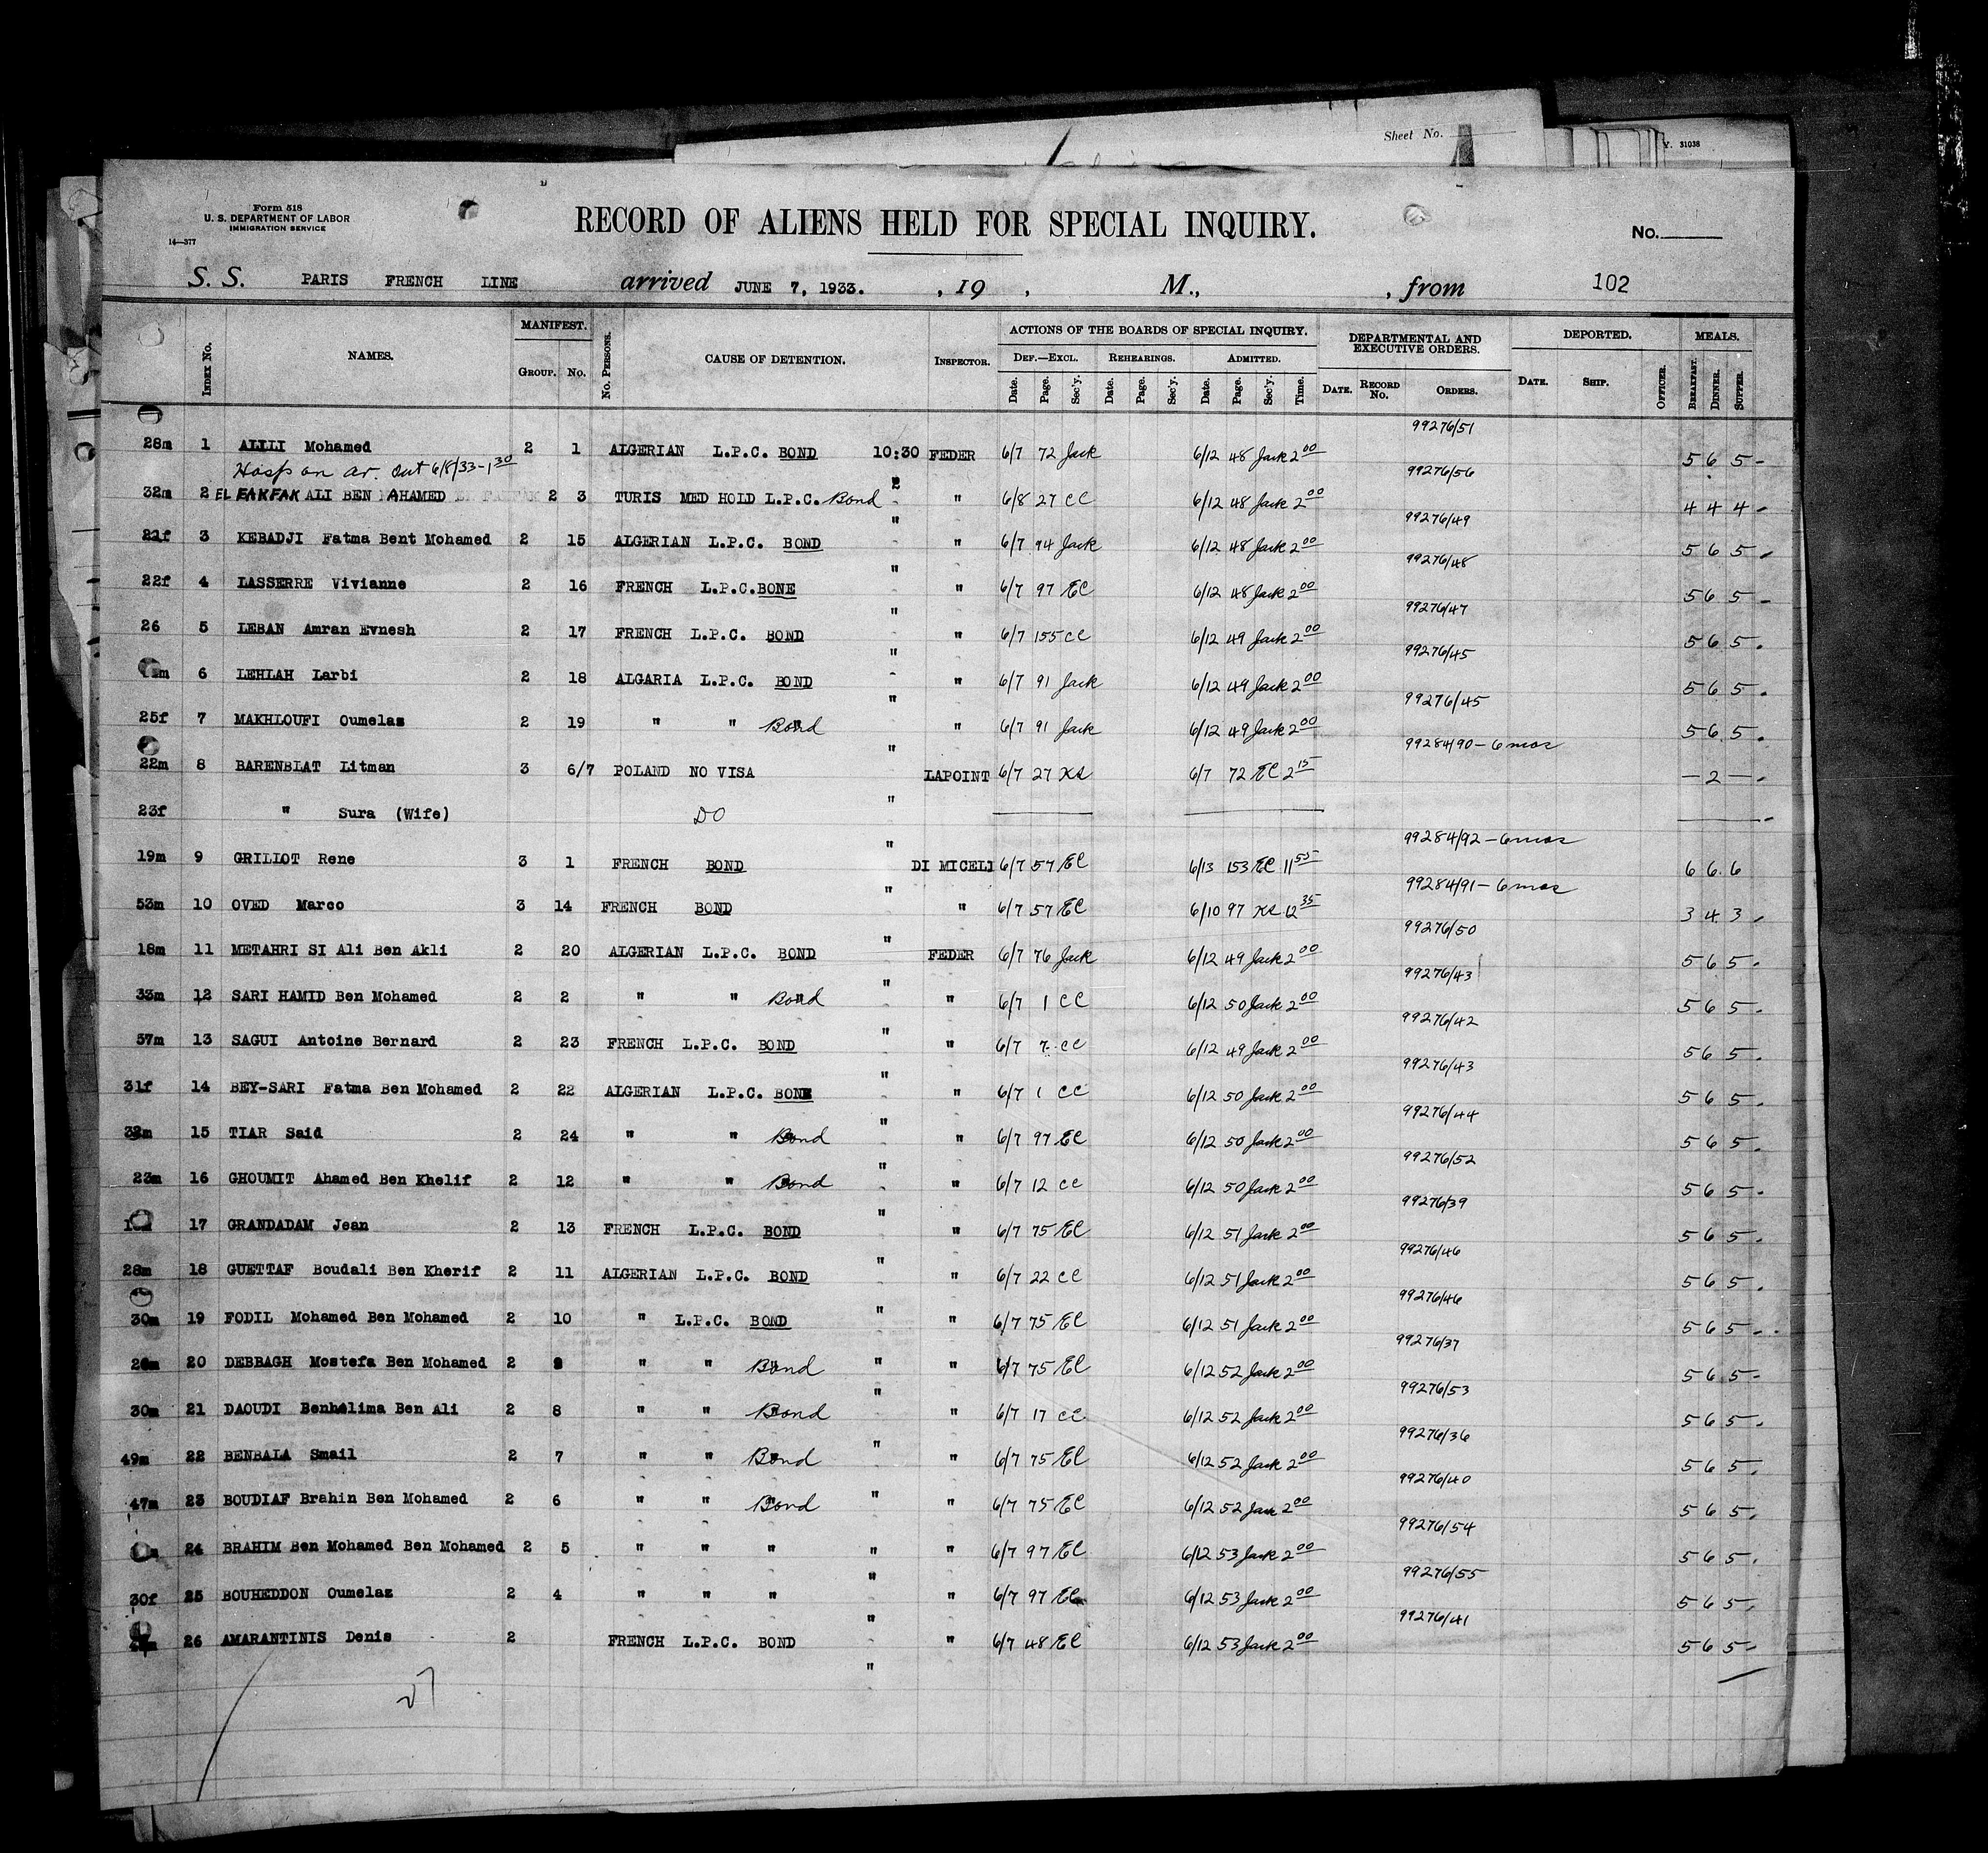 Sheet No.
Y. 31038
Form 518
U. S. DEPARTMENT OF LABOR
IMMIGRATION SERVICE
14—377
RECORD OF ALIENS HELD FOR SPECIAL INQUIRY.
No.
S. S. PARIS FRENCH LINE arrived JUNE 7, 1933. , 19 , M., , from 102
INDEX No. NAMES. MANIFEST. GROUP. No. No. PERSONS. CAUSE OF DETENTION. INSPECTOR. ACTIONS OF THE BOARDS OF SPECIAL INQUIRY. DEF.—EXCL. REHEARINGS. ADMITTED. DEPARTMENTAL AND EXECUTIVE ORDERS. DEPORTED. MEALS.
Date. Page. Sec'y. Date. Page. Sec'y. Date. Page. Sec'y. Time. DATE. RECORD No. ORDERS. DATE. SHIP. OFFICER. BREAKFAST. DINNER. SUPPER.
99276/51
28m 1 ALILI Mohamed 2 1 ALGERIAN L.P.C. BOND 10:30 FEDER 6/7 72 Jack 6/12 48 Jack 2 00 5 6 5 -
Hosp on ar. Out 6/8/33-1 30
99276/56
32m 2 EL FAKFAK ALI BEN AHAMED 2 3 TURIS MED HOLD L.P.C. Bond " 6/8 27 CC 6/12 48 Jack 2 00 4 4 4 -
99276/49
21f 3 KEBADJI Fatma Bent Mohamed 2 15 ALGERIAN L.P.C. BOND " " 6/7 94 Jack 6/12 48 Jack 2 00 5 6 5 -
99276/48
22f 4 LASSERRE Vivianne 2 16 FRENCH L.P.C. BONE " " 6/7 97 EC 6/12 48 Jack 2 00 5 6 5 -
99276/47
26 5 LEBAN Amran Evnesh 2 17 FRENCH L.P.C. BOND " " 6/7 155 CC 6/12 49 Jack 2 00 5 6 5 .
99276/45
m 6 LEHLAH Larbi 2 18 ALGARIA L.P.C. BOND " " 6/7 91 Jack 6/12 49 Jack 2 00 5 6 5 .
99276/45
25f 7 MAKHLOUFI Oumelaz 2 19 " " Bond " " 6/7 91 Jack 6/12 49 Jack 2 00 5 6 5 .
99284/90 - 6 mos
22m 8 BARENBLAT Litman 3 6/7 POLAND NO VISA " LAPOINT 6/7 27 KS 6/7 72 EC 2 15 — 2 — .
23f " Sura (Wife) DO "
99284/92 - 6 mos
19m 9 GRILLOT Rene 3 1 FRENCH BOND " DI MICELI 6/7 57 EC 6/13 153 EC 11 55 6 6 6
99284/91 - 6 mos
53m 10 OVED Marco 3 14 FRENCH BOND " " 6/7 57 EC 6/10 97 KS 12 35 3 4 3 .
99276/50
18m 11 METAHRI SI Ali Ben Akli 2 20 ALGERIAN L.P.C. BOND " FEDER 6/7 76 Jack 6/12 49 Jack 2 00 5 6 5 .
99276/43
33m 12 SARI HAMID Ben Mohamed 2 2 " " Bond " " 6/7 1 CC 6/12 50 Jack 2 00 5 6 5 .
99276/42
37m 13 SAGUI Antoine Bernard 2 23 FRENCH L.P.C. BOND " " 6/7 7 CC 6/12 49 Jack 2 00 5 6 5 .
99276/43
31f 14 BEY-SARI Fatma Ben Mohamed 2 22 ALGERIAN L.P.C. BOND " " 6/7 1 CC 6/12 50 Jack 2 00 5 6 5 .
99276/44
32m 15 TIAR Said 2 24 " " Bond " " 6/7 97 EC 6/12 50 Jack 2 00 5 6 5 .
99276/52
23m 16 GHOUMIT Ahamed Ben Khelif 2 12 " " Bond " " 6/7 12 CC 6/12 50 Jack 2 00 5 6 5 .
99276/39
17 GRANDADAM Jean 2 13 FRENCH L.P.C. BOND " " 6/7 75 EC 6/12 51 Jack 2 00 5 6 5 .
99276/46
28m 18 GUETTAF Boudali Ben Kherif 2 11 ALGERIAN L.P.C. BOND " " 6/7 22 CC 6/12 51 Jack 2 00 5 6 5 .
99276/46
30m 19 FODIL Mohamed Ben Mohamed 2 10 " L.P.C. BOND " " 6/7 75 EC 6/12 51 Jack 2 00 5 6 5 .
99276/37
26m 20 DEBBAGH Mostefa Ben Mohamed 2 9 " " Bond " " 6/7 75 EC 6/12 52 Jack 2 00 5 6 5 -
99276/53
30m 21 DAOUDI Benhelima Ben Ali 2 8 " " Bond " " 6/7 17 CC 6/12 52 Jack 2 00 5 6 5 .
99276/36
49m 22 BENBALA Smail 2 7 " " Bond " " 6/7 75 EC 6/12 52 Jack 2 00 5 6 5 .
99276/40
47m 23 BOUDIAF Brahin Ben Mohamed 2 6 " " Bond " " 6/7 75 EC 6/12 52 Jack 2 00 5 6 5 .
99276/54
24 BRAHIM Ben Mohamed Ben Mohamed 2 5 " " " " " 6/7 97 EC 6/12 53 Jack 2 00 5 6 5 .
99276/55
30f 25 BOUHEDDON Oumelaz 2 4 " " " " " 6/7 97 EC 6/12 53 Jack 2 00 5 6 5 .
99276/41
26 AMARANTINIS Denis 2 FRENCH L.P.C. BOND " " 6/7 48 EC 6/12 53 Jack 2 00 5 6 5 -
"
27